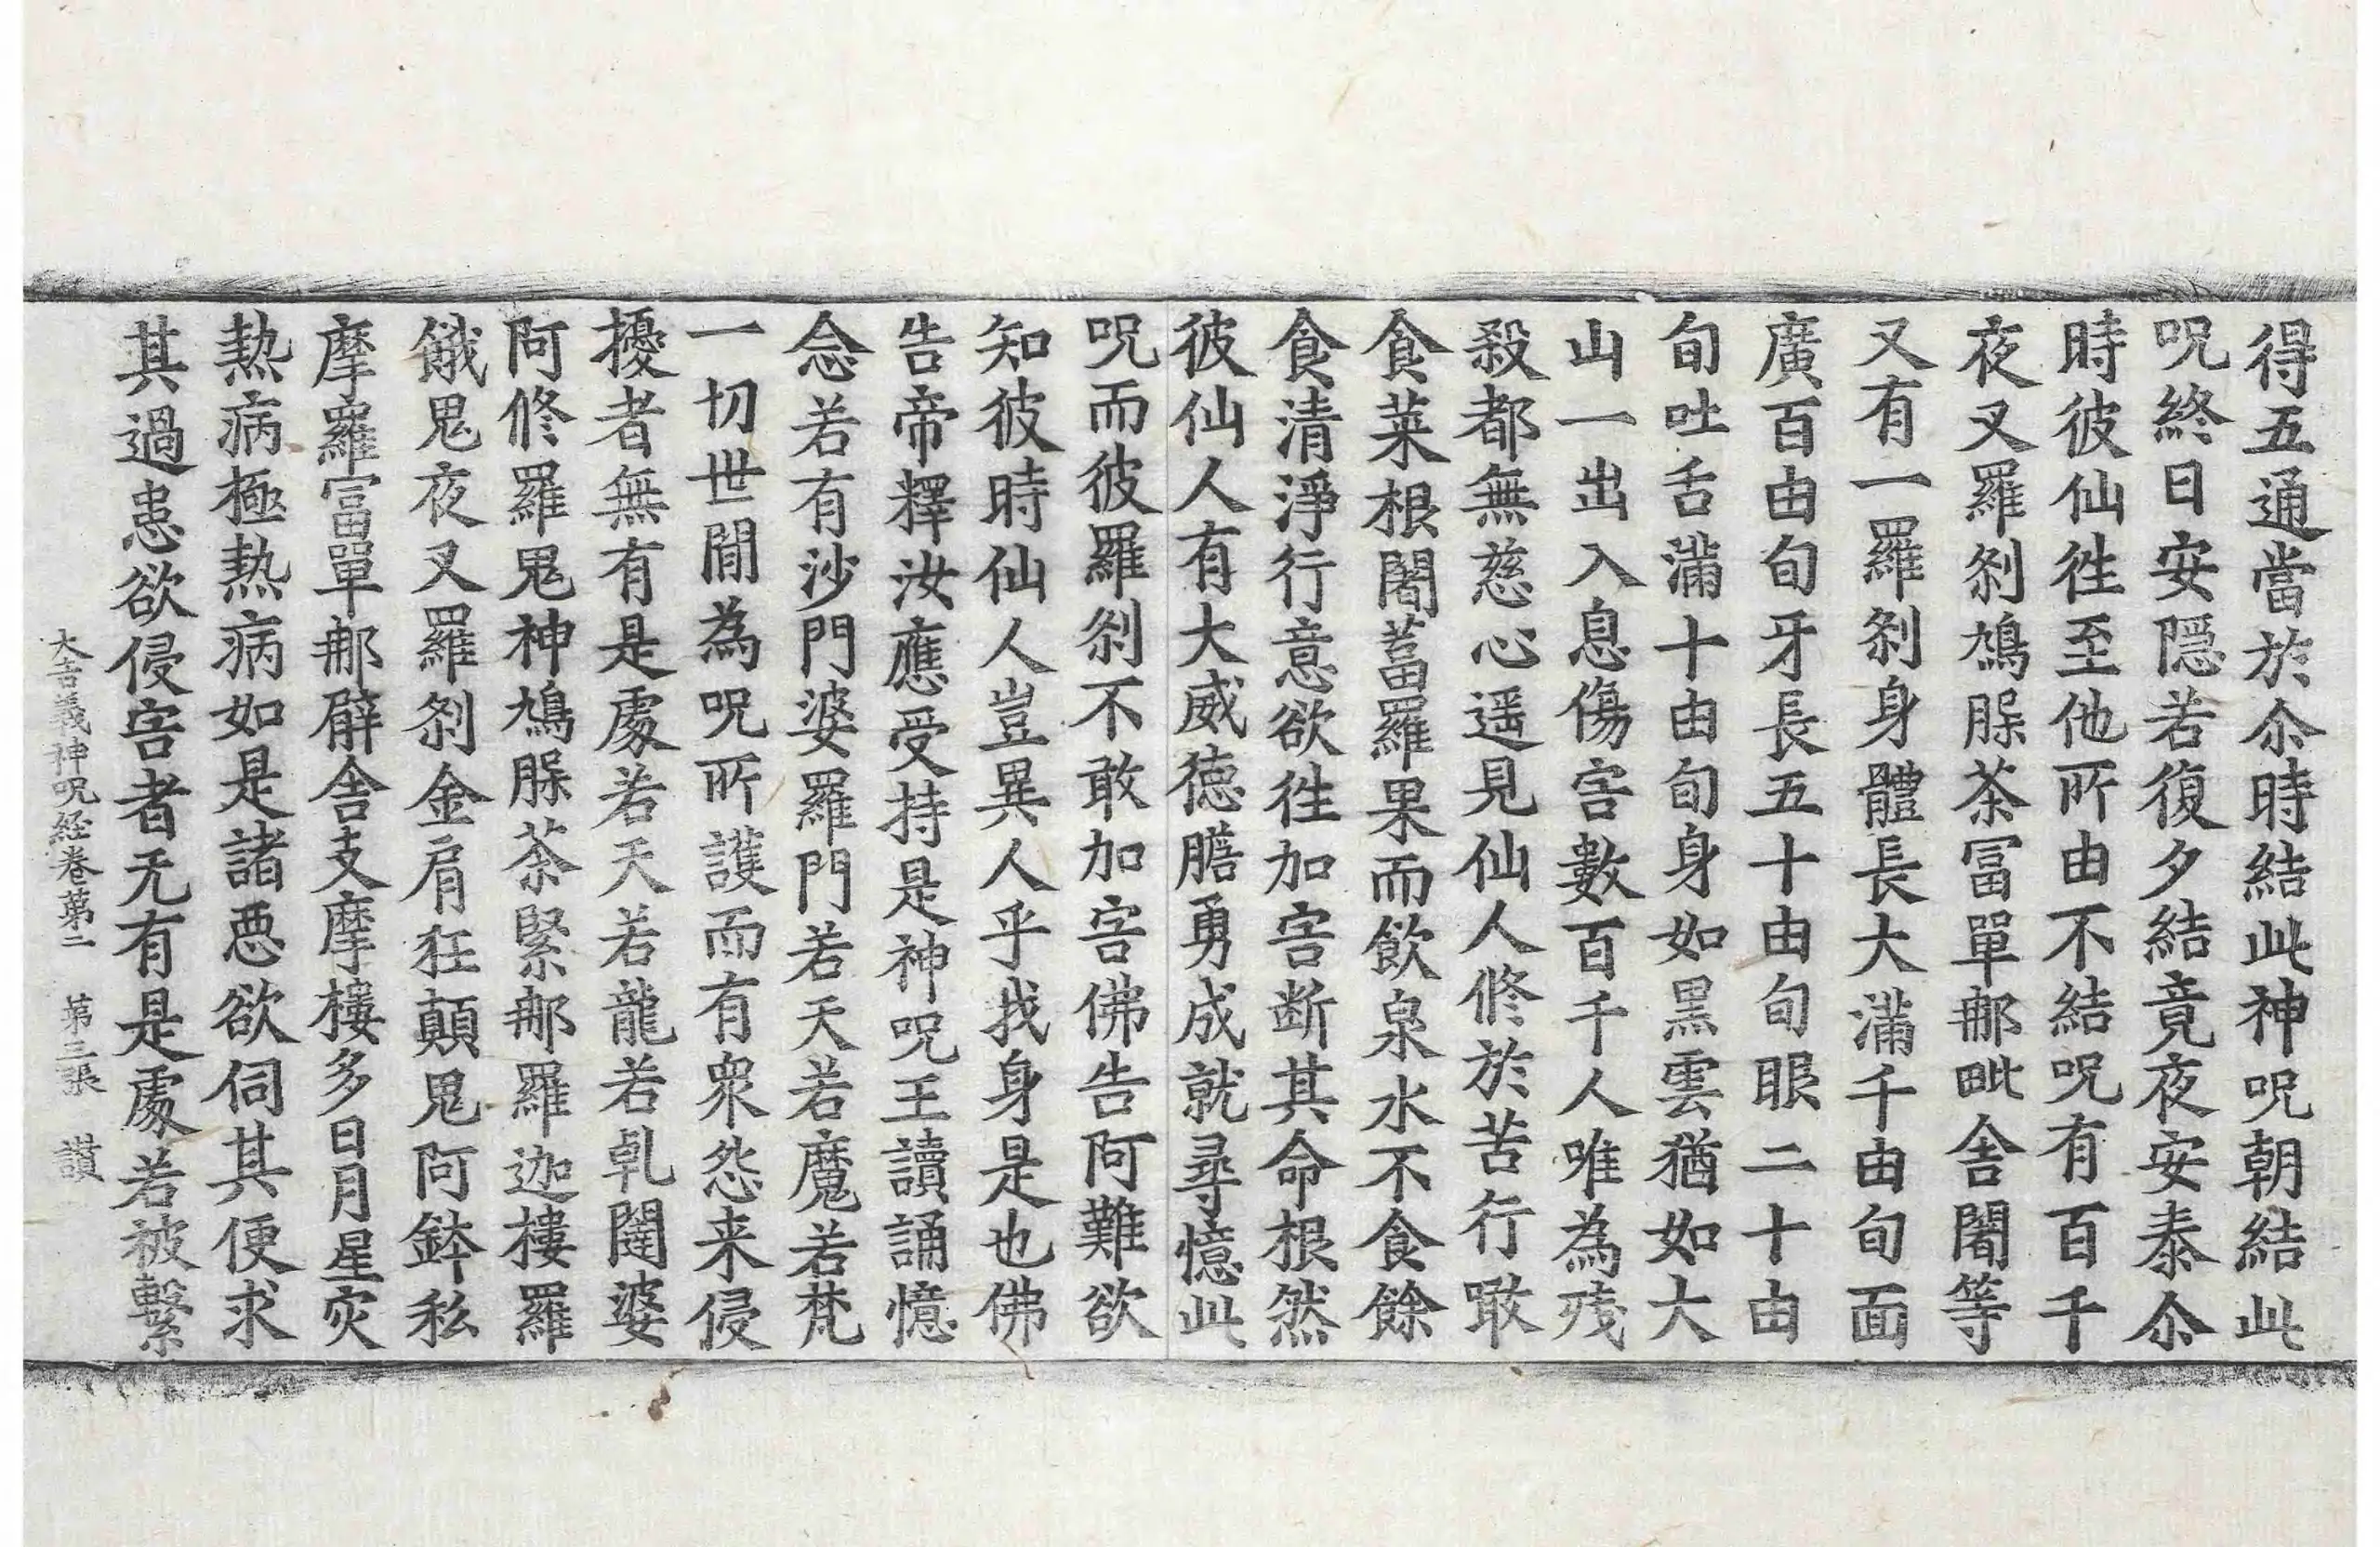 得五通當於尒時結此神呪朝結此
呪終日安隱若復夕結竟夜安泰尒
時彼仙徃至他所由不結呪有百千
夜叉羅剎鳩腂茶冨單郍毗舎闍等
又有一羅剎身體長大滿千由旬面
廣百由旬牙長五十由旬眼二十由
旬吐舌滿十由旬身如黑雲猶如大
山一出入息傷害數百千人唯為殘
殺都無慈心遥見仙人修於苦行噉
食菜根闍蓲羅果而飲泉水不食餘
食清淨行意欲徃加害断其命根然
彼仙人有大威徳膽勇成就尋憶此
呪而彼羅剎不敢加害佛告阿難欲
知彼時仙人豈異人乎我身是也佛
告帝釋汝應受持是神呪王讀誦憶
念若有沙門婆羅門若天若魔若梵
一切世間為呪所護而有衆怨来侵
擾者無有是處若天若龍若乹闥婆
阿修羅鬼神鳩腂茶緊郍羅迦樓羅
餓鬼夜叉羅剎金肩狂顛鬼阿鉢私
摩羅冨單郍辟舎支摩樓多日月星灾
熱病極熱病如是諸惡欲伺其便求
其過患欲侵害者无有是處若被繫
大吉義神呪経卷第二 第三張 讃